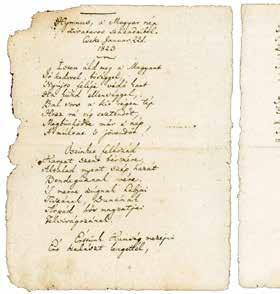 Hymnus, a' Magyar nép
zivataros századaiból.
Cseke Januar. 22d.
1823
Isten áldd meg a' Magyart
Jó kedvvel, bőséggel,
Nyújts feléje védő kart
Ha küzd ellenséggel,
Bal sors a' kit régen tép
Hozz rá víg esztendőt,
Megbűnhődte már a' nép
A' multat 's jövendőt.
Őseinket felhozád
Kárpát szent bérczére,
Általad nyert szép hazát
Bendegúznak vére.
'S merre zúgnak habjai
Tiszának, Dunának
Árpád hős magzatjai
Felvirágozának.
Értünk Kunság mezejein
Ért kalászt lengettél,